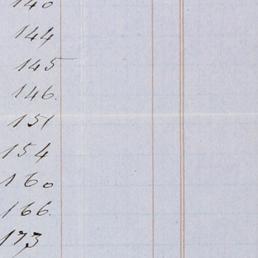 140
144
145
146.
151
154
160
166.
173